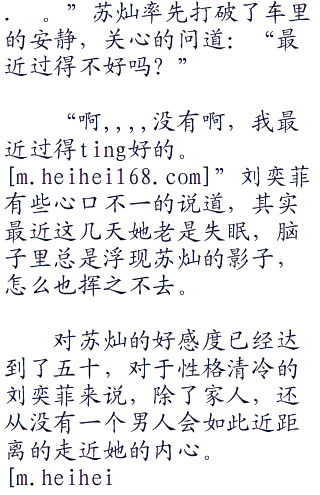 . 。”苏灿率先打破了车里
的安静，关心的问道：“最
近过得不好吗？”
“啊,,,,没有啊，我最
近过得ting好的。
[m.heihei168.com]”刘奕菲
有些心口不一的说道，其实
最近这几天她老是失眠，脑
子里总是浮现苏灿的影子，
怎么也挥之不去。
对苏灿的好感度已经达
到了五十，对于性格清冷的
刘奕菲来说，除了家人，还
从没有一个男人会如此近距
离的走近她的内心。
[m.heihei